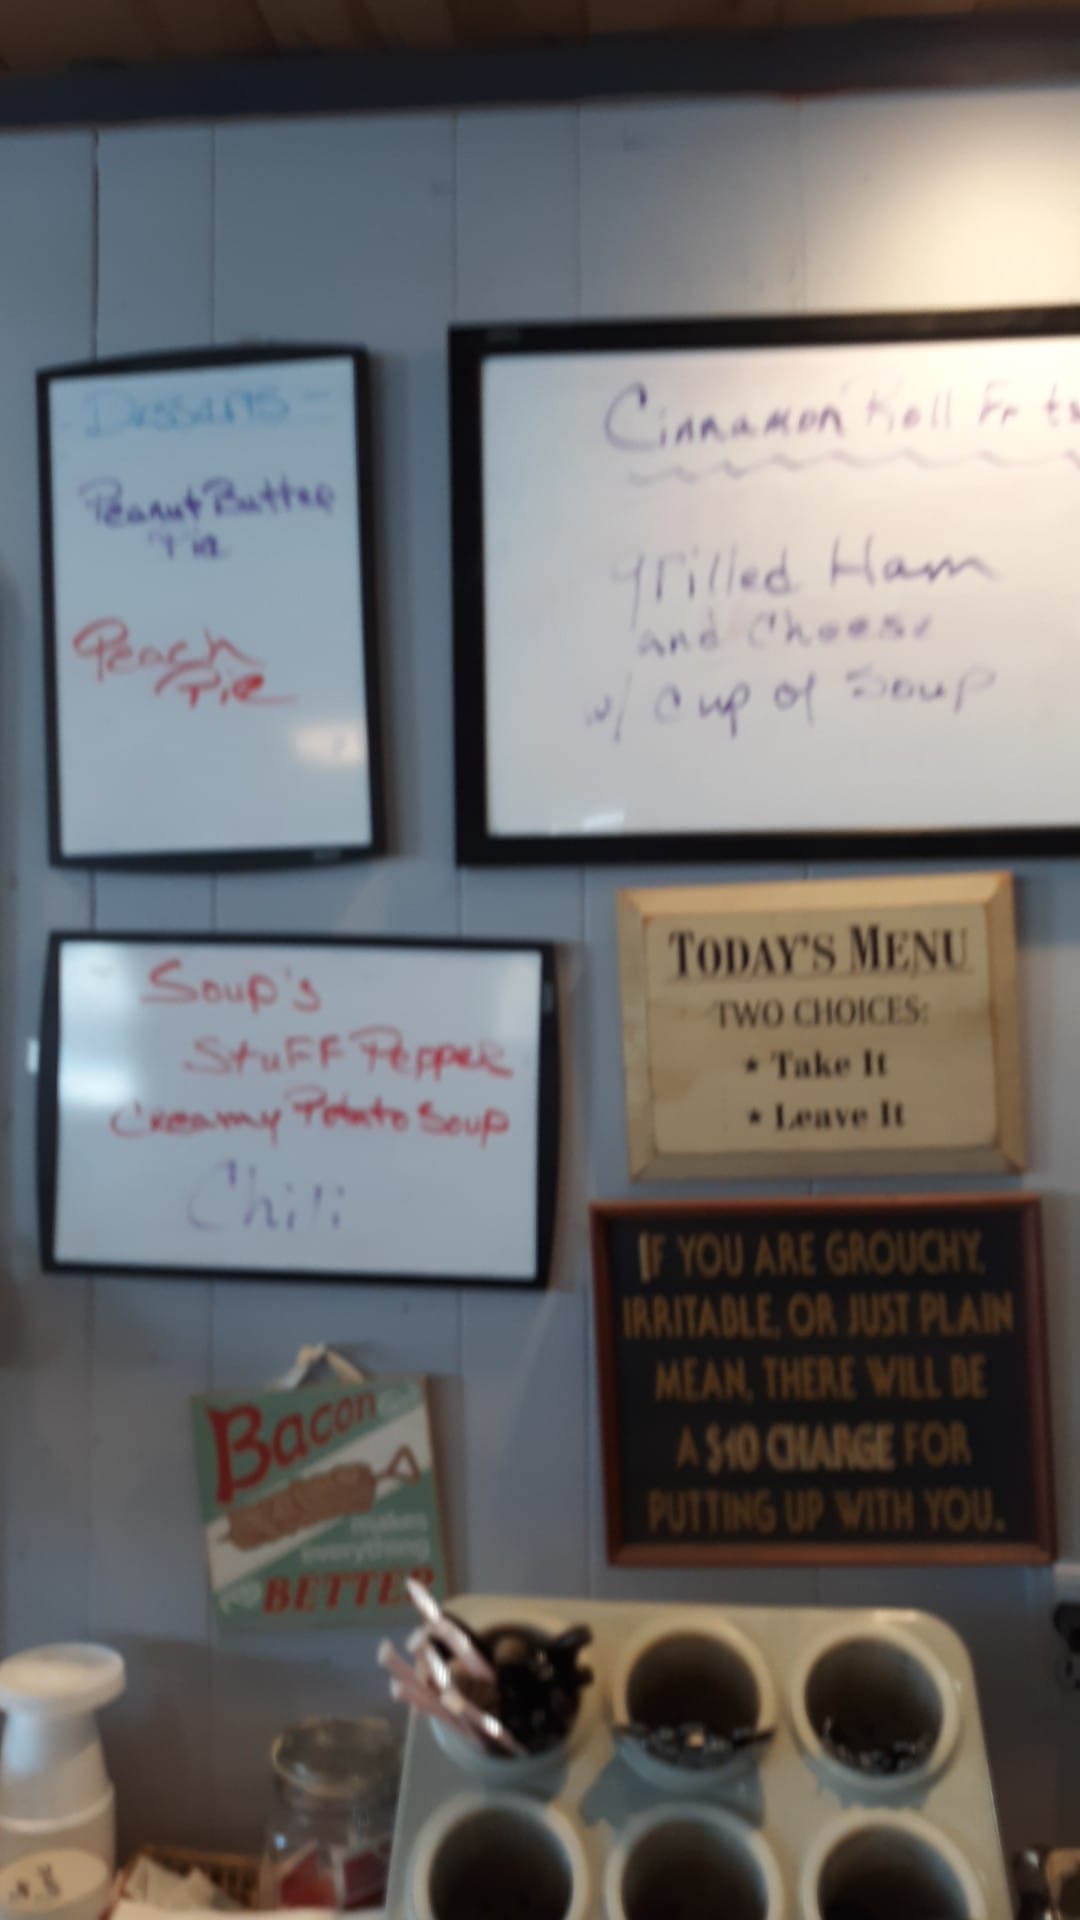 Desserts
Peanut Butter
Pie
Peach
Pie
Cinnamon Roll
Grilled Ham
and Cheese
w/ Cup of Soup
Soup's
Stuff Pepper
Creamy Potato Soup
Chili
TODAY'S MENU
TWO CHOICES:
★ Take It
★ Leave It
IF YOU ARE GROUCHY,
IRRITABLE, OR JUST PLAIN
MEAN, THERE WILL BE
A $10 CHARGE FOR
PUTTING UP WITH YOU.
Bacon
makes
everything
BETTER